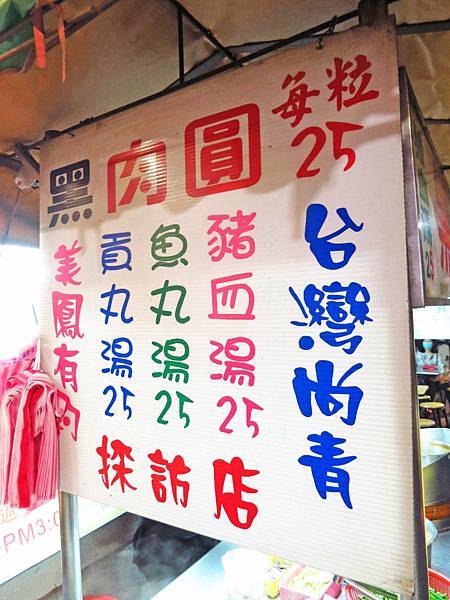 黑肉圓
每粒
25
台灣尚青
豬血湯25
魚丸湯25
貢丸湯25
美鳳有約
採訪店
PM3:0
25